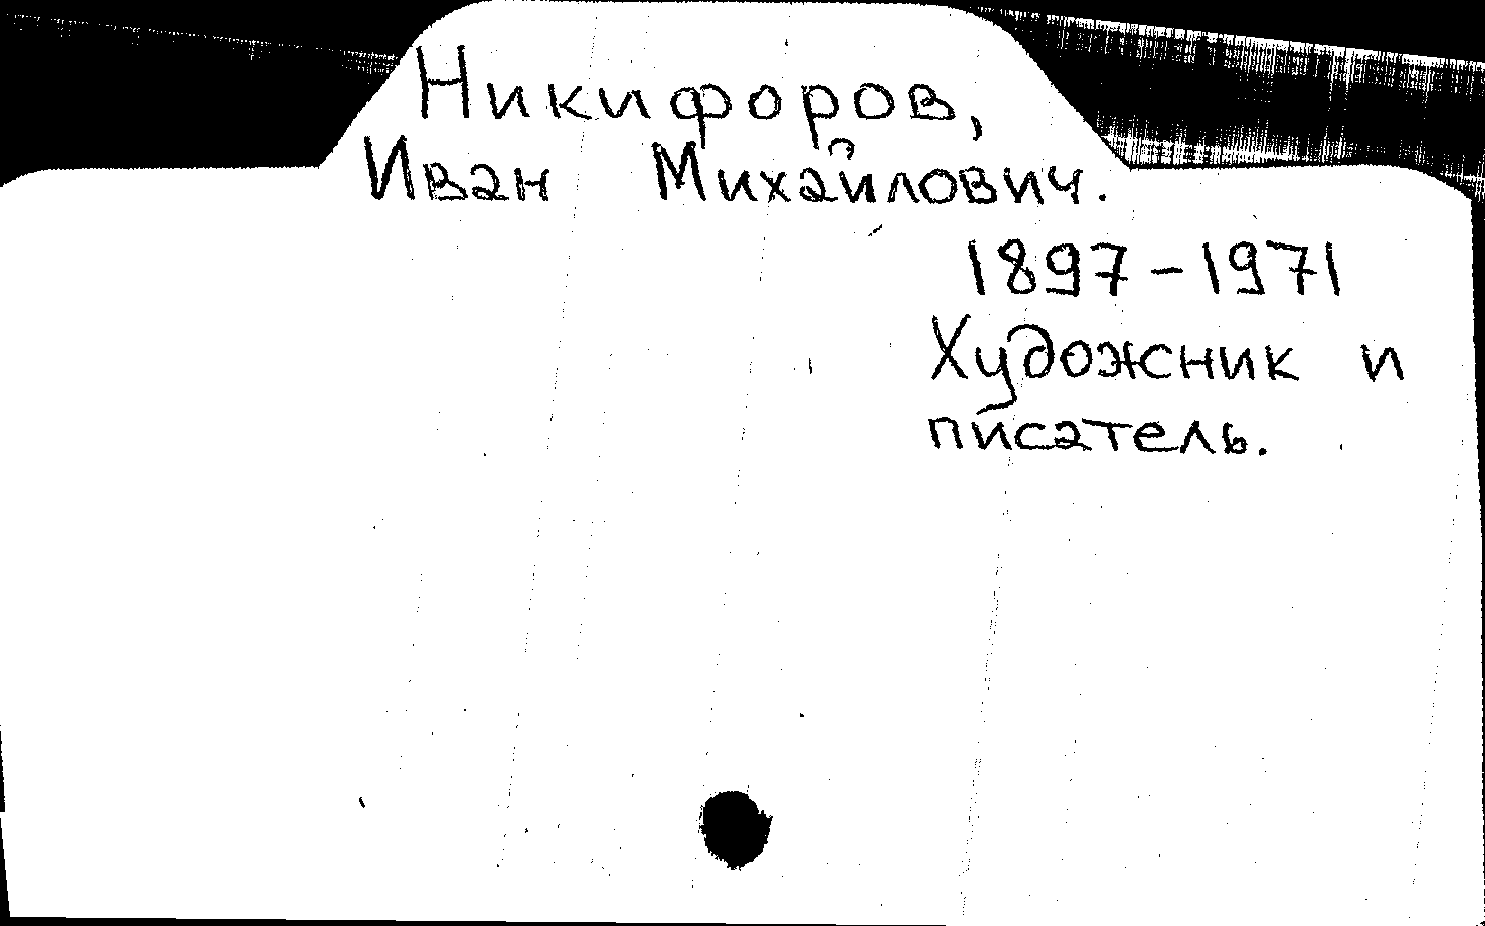 Никифоров,
Иван Михайлович.
1897-1971
Художник и
писатель.